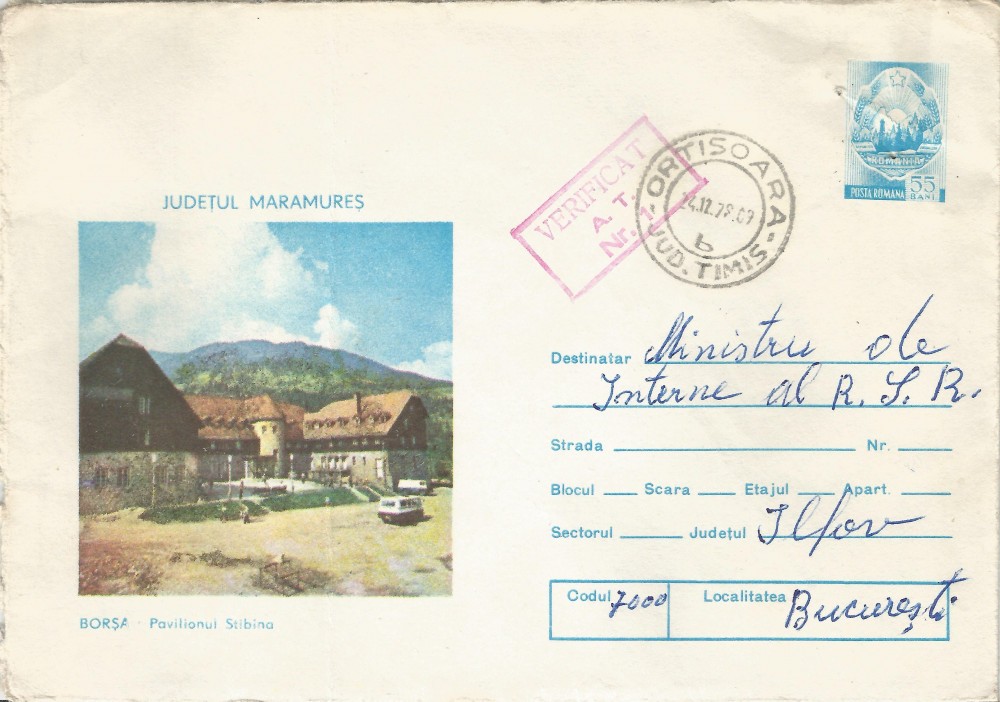 JUDEȚUL MARAMUREȘ
BORȘA - Pavilionul Stibina
VERIFICAT
A. T.
Nr. 1
ORTISOARA
12.79.09
b
JUD. TIMIS
ROMANIA
POSTA ROMANA 55 BANI
Destinatar Ministru de
Interne al R. S. R.
Strada Nr.
Blocul Scara Etajul Apart.
Sectorul Județul Ilfov
Codul 7000 Localitatea București